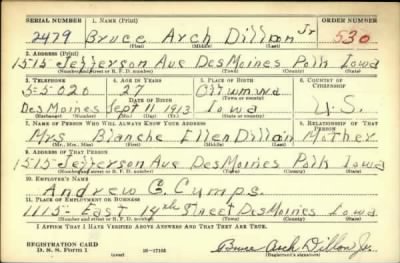 SERIAL NUMBER 1. NAME (Print) ORDER NUMBER
2479 Bruce Arch Dillon Jr 530
(First) (Middle) (Last)
2. ADDRESS (Print)
1515 Jefferson Ave Des Moines Polk Iowa
(Number and street or R. F. D. number) (Town) (County) (State)
3. TELEPHONE 4. AGE IN YEARS 5. PLACE OF BIRTH 6. COUNTRY OF CITIZENSHIP
5-5020 27 Ottumwa
DATE OF BIRTH (Town or county)
Des Moines Sept 11 1913 Iowa U.S.
(Exchange) (Number) (Mo.) (Day) (Yr.) (State or country)
7. NAME OF PERSON WHO WILL ALWAYS KNOW YOUR ADDRESS 8. RELATIONSHIP OF THAT PERSON
Mrs Blanche Ellen Dillon Mother
(Mr., Mrs., Miss) (First) (Middle) (Last)
9. ADDRESS OF THAT PERSON
1515 Jefferson Ave Des Moines Polk Iowa
(Number and street or R. F. D. number) (Town) (County) (State)
10. EMPLOYER'S NAME
Andrew C. Cumps.
11. PLACE OF EMPLOYMENT OR BUSINESS
1115- East 14th Street Des Moines Iowa
(Number and street or R. F. D. number) (Town) (County) (State)
I AFFIRM THAT I HAVE VERIFIED ABOVE ANSWERS AND THAT THEY ARE TRUE.
REGISTRATION CARD
D. S. S. Form 1 (over) Bruce Arch Dillon Jr.
(Registrant's signature)